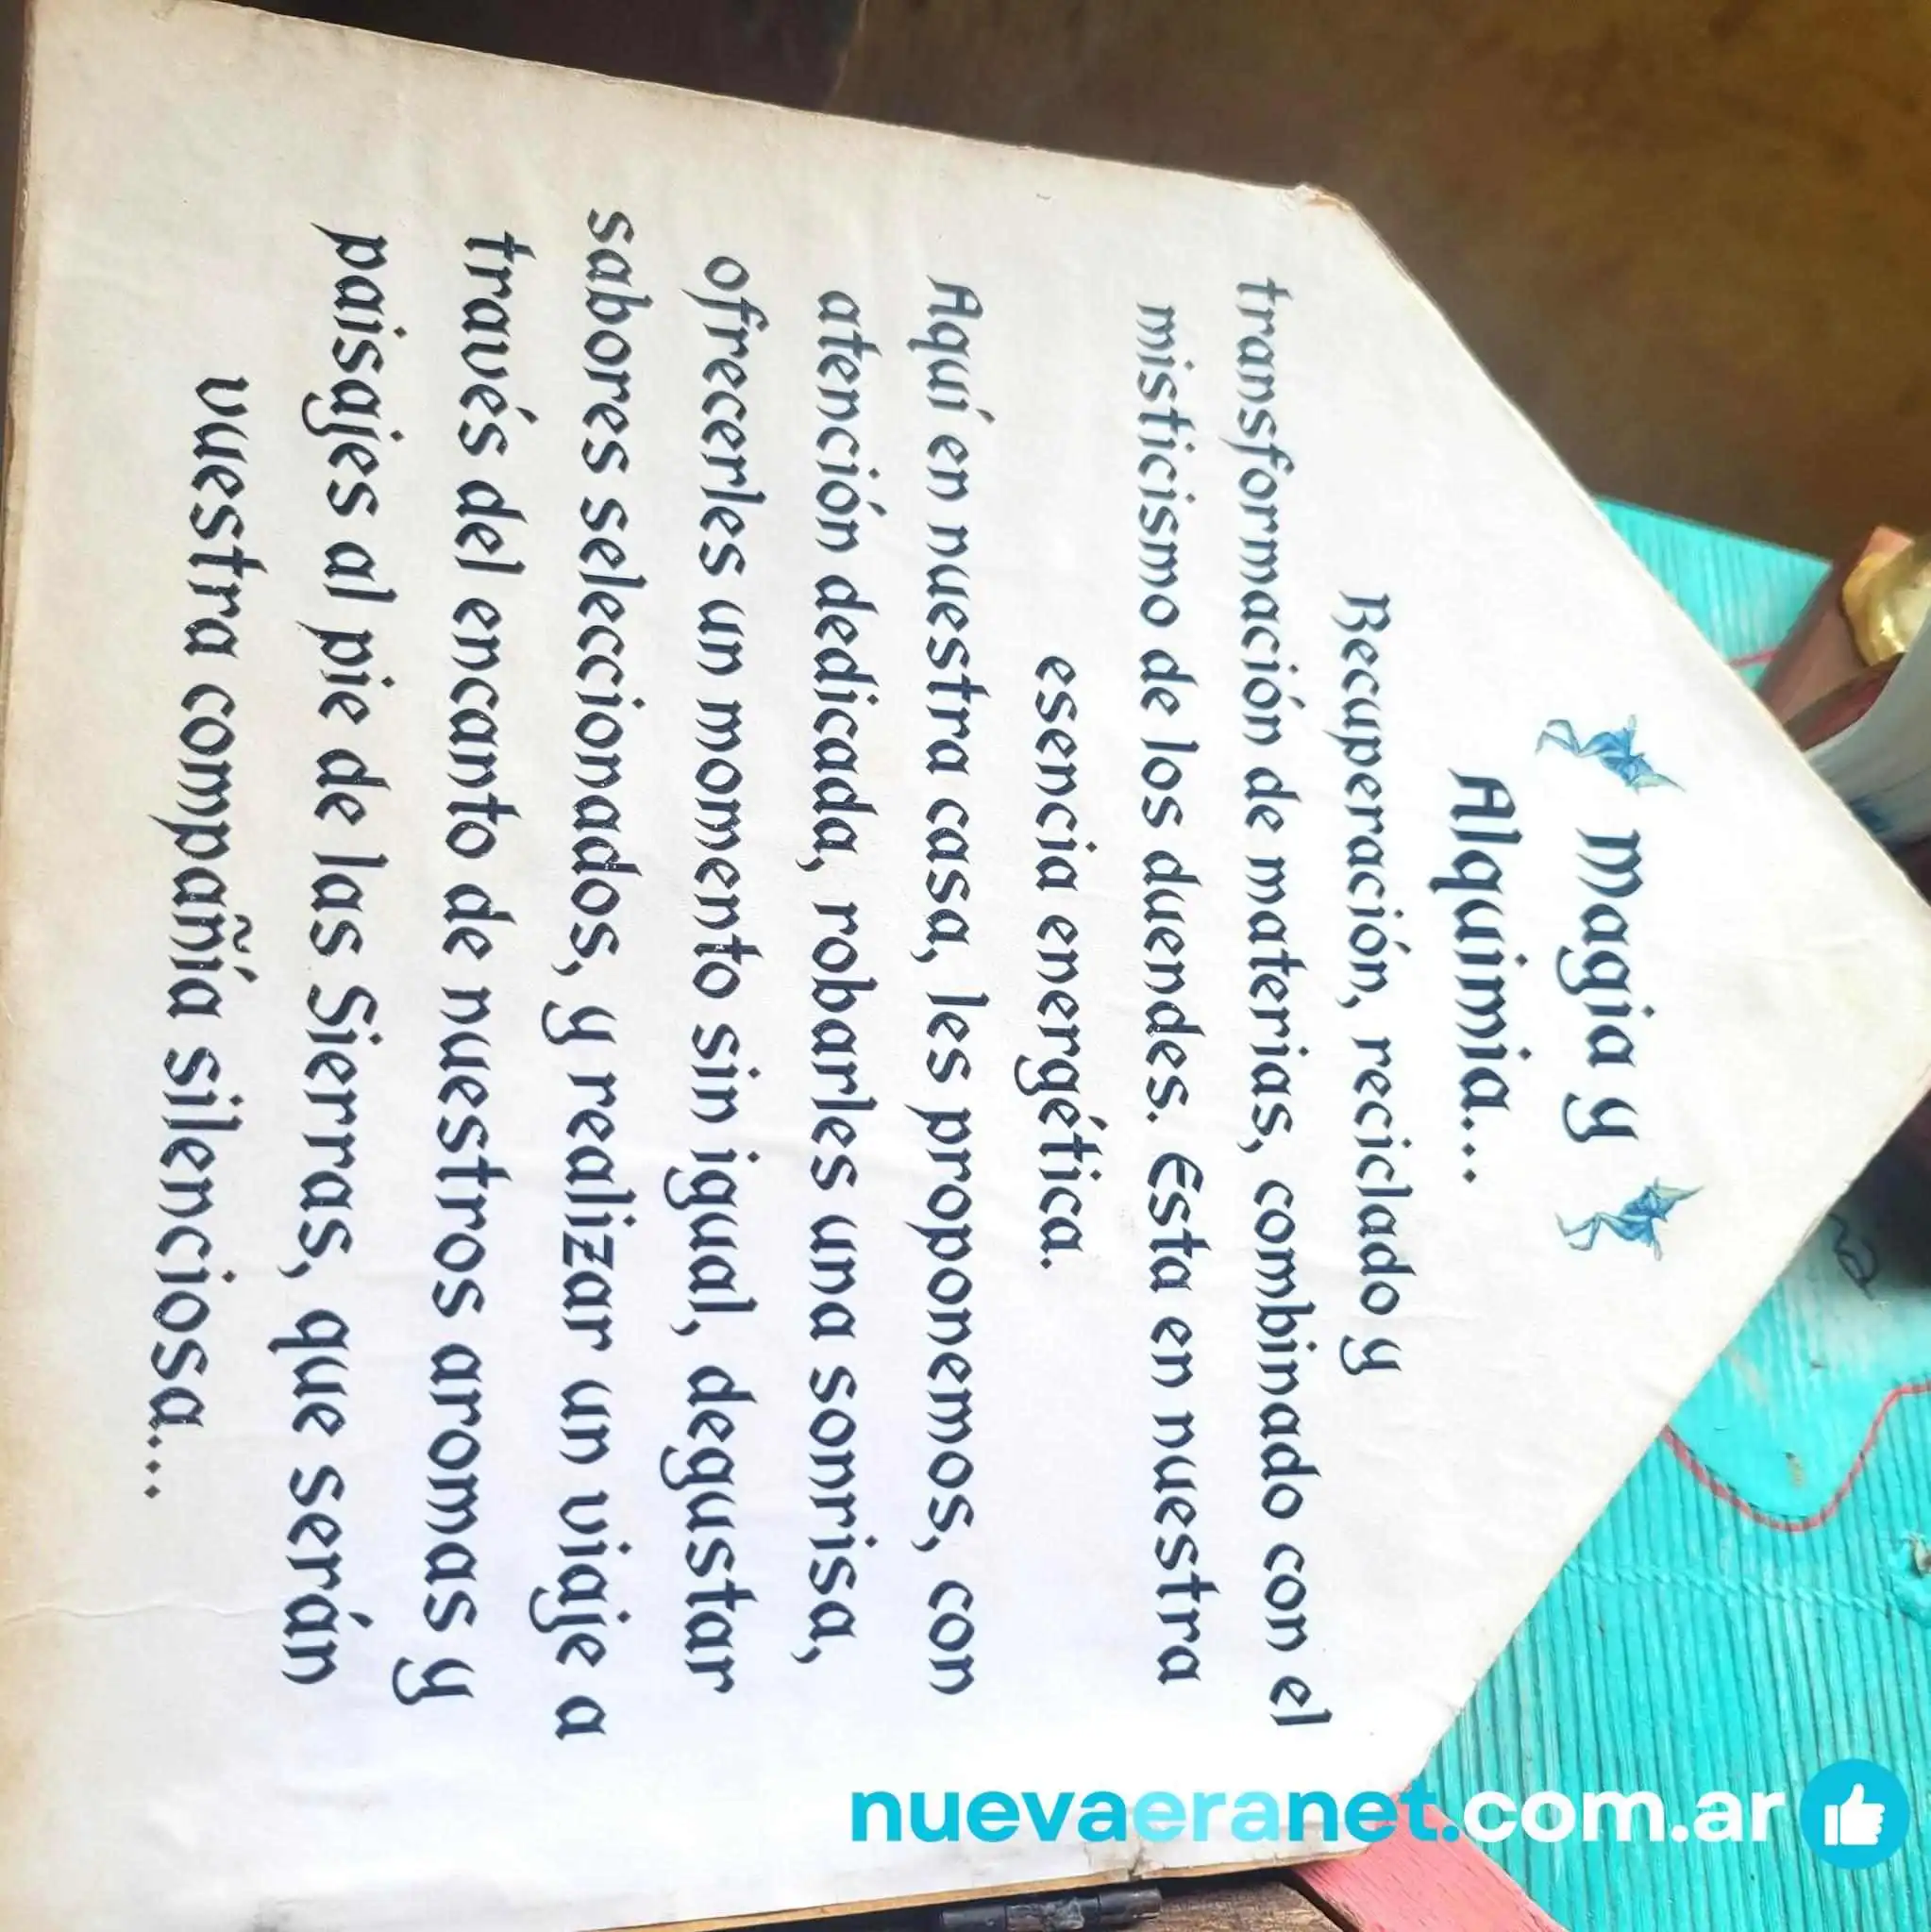 Magia y
Alquimia...
Recuperación, reciclado y
transformación de materias, combinado con el
misticismo de los duendes. Esta en nuestra
esencia energética.
Aquí en nuestra casa, les proponemos, con
atención dedicada, robarles una sonrisa,
ofrecerles un momento sin igual, degustar
sabores seleccionados, y realizar un viaje a
través del encanto de nuestros aromas y
paisajes al pie de las Sierras, que serán
vuestra compañía silenciosa....
nuevaeranet.com.ar